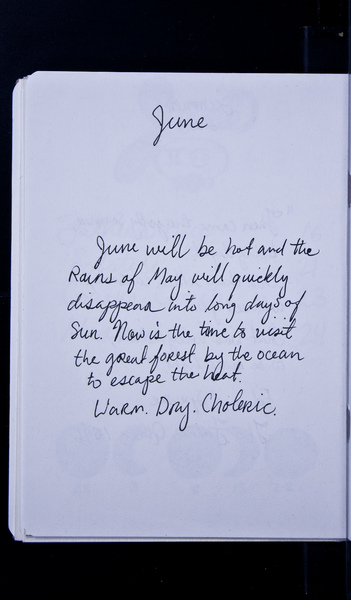 June
June will be hot and the
Rains of May will quickly
disappear into long days of
Sun. Now is the time to visit
the great forest by the ocean
to escape the heat.
Warm. Dry. Choleric.